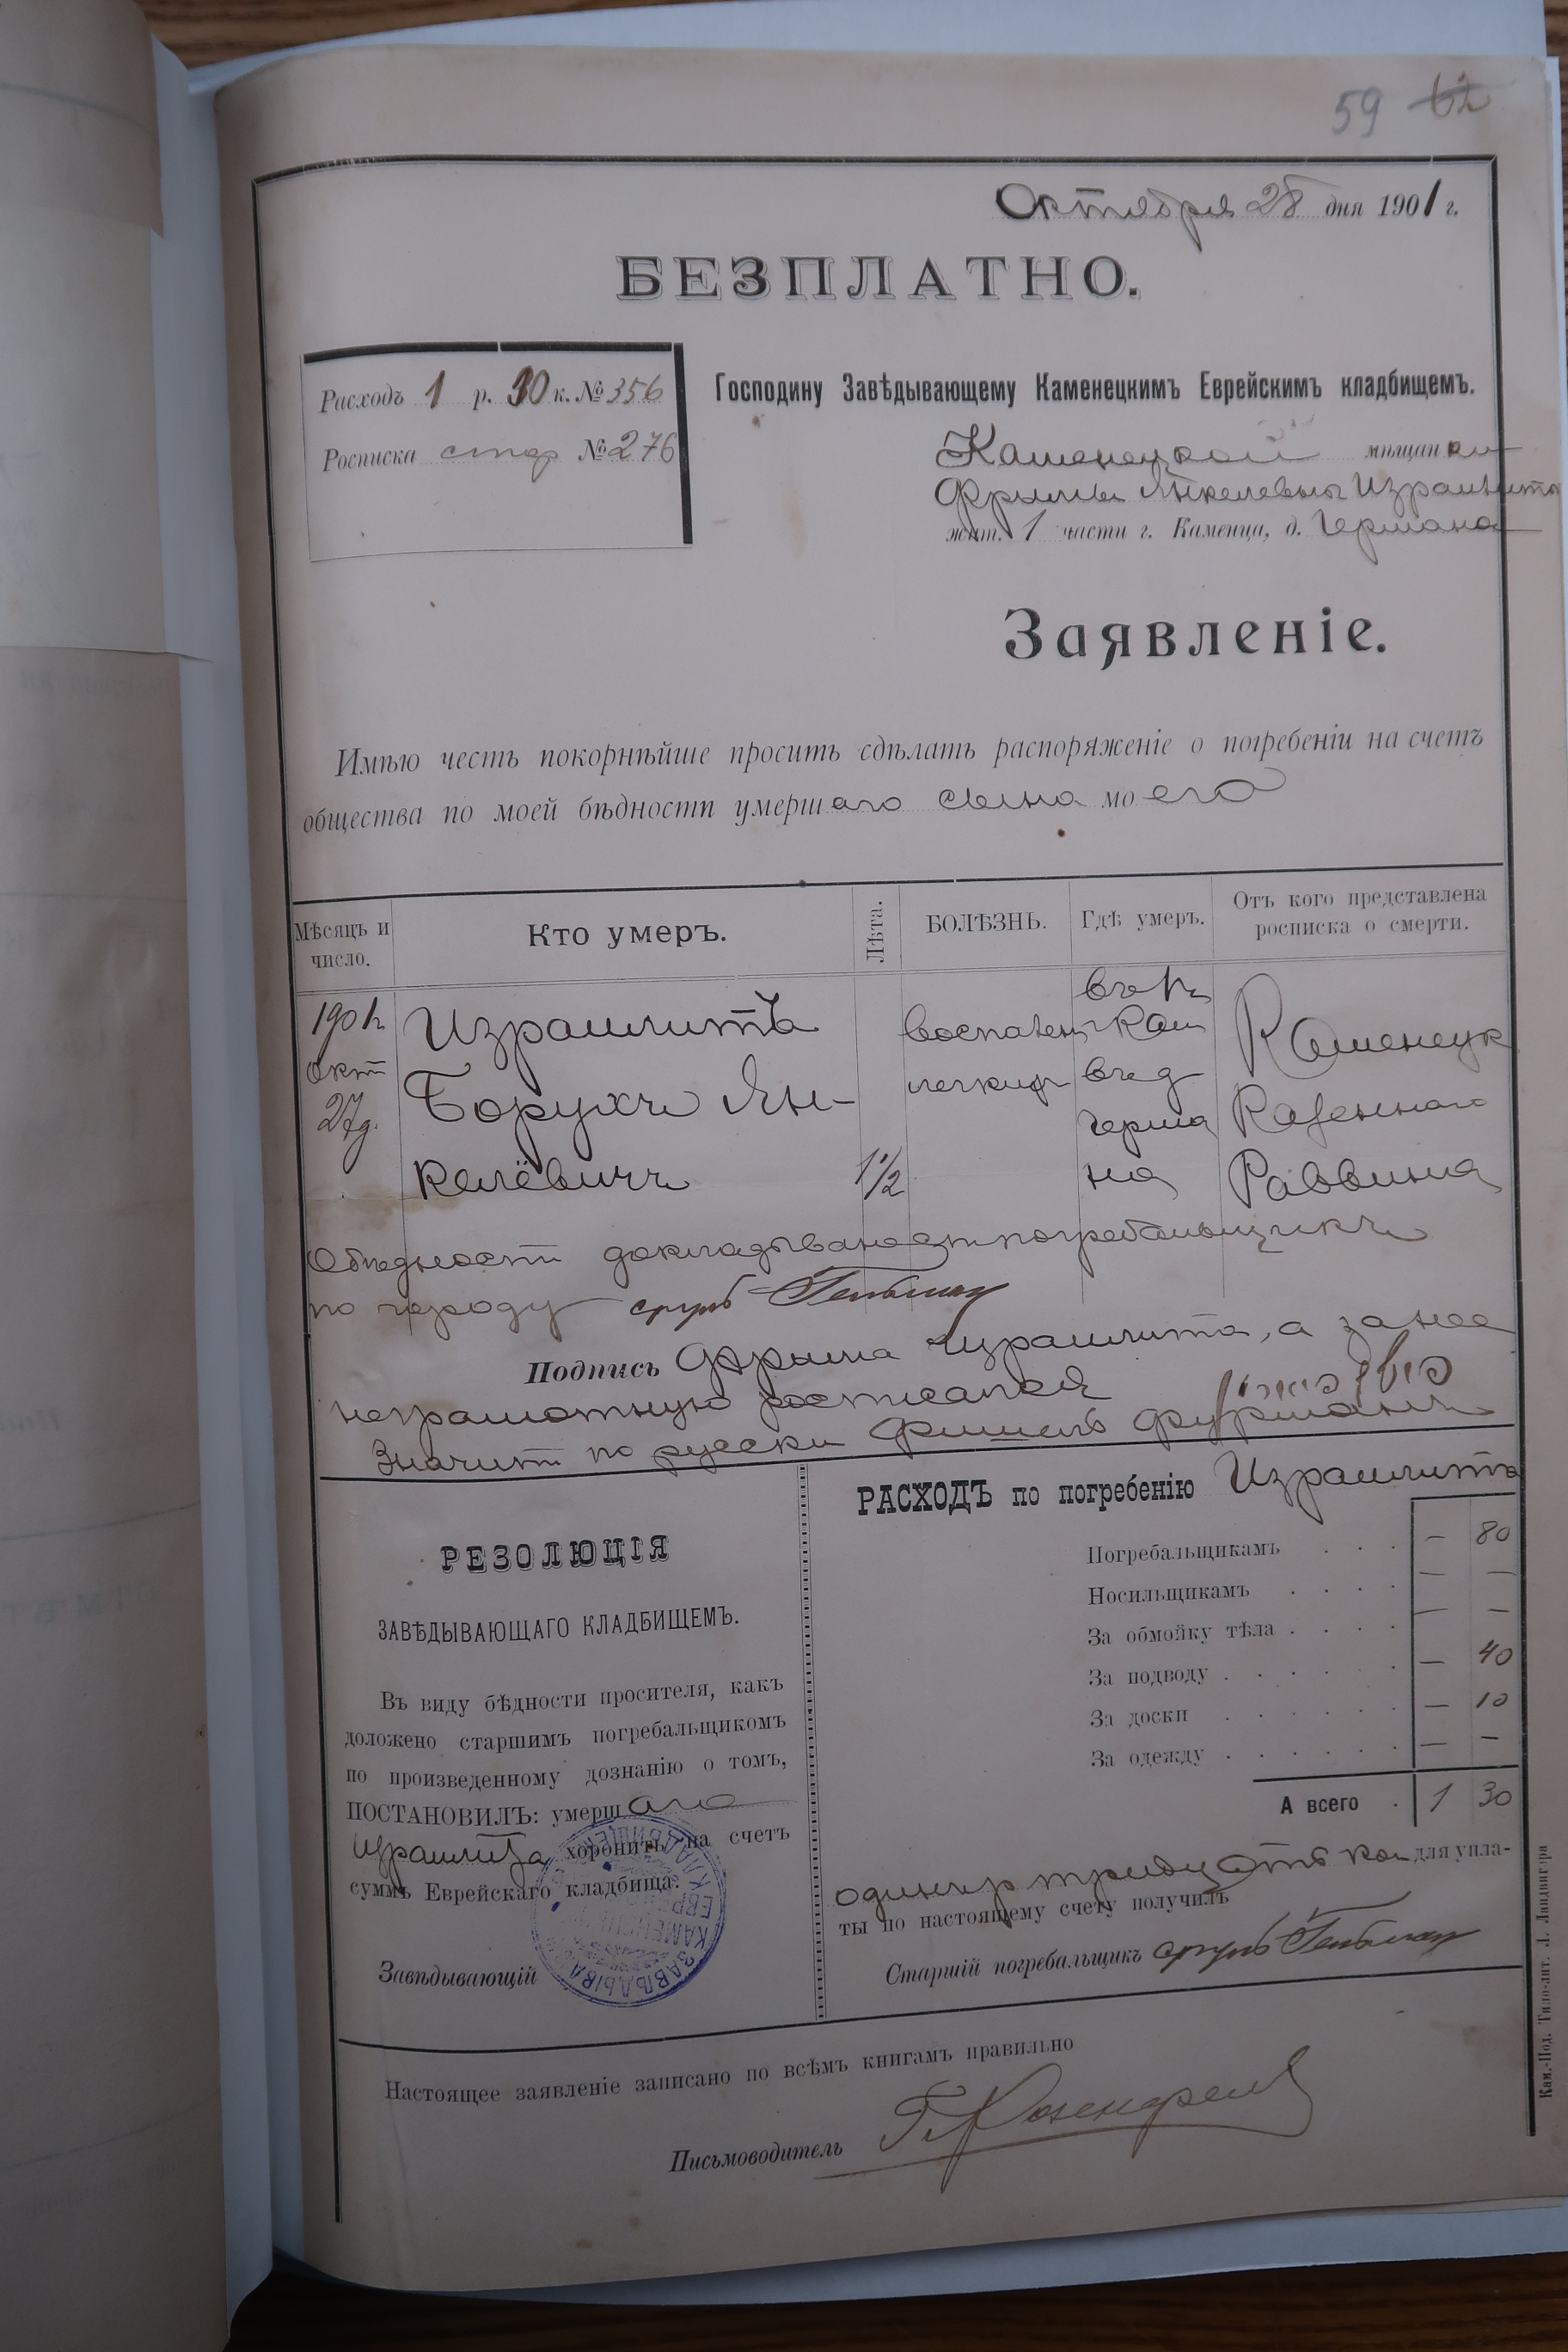 59 62
Октября 28 дня 1901 г.
БЕЗПЛАТНО.
Расходъ 1 р. 30 к. № 356
Росписка стар № 276
Господину Завѣдывающему Каменецкимъ Еврейскимъ кладбищемъ.
Каменецкой мѣщанки
Фрымы Янкелевны Израилита
жит. 1 части г. Каменца, д. Германа
Заявленіе.
Имѣю честь покорнѣйше просить сдѣлать распоряженіе о погребеніи на счетъ
общества по моей бѣдности умершаго сына моего
Мѣсяцъ и число.
Кто умеръ.
Лѣта.
БОЛѢЗНЬ.
Гдѣ умеръ.
Отъ кого представлена росписка о смерти.
1901 г
окт
27 д.
Израилитъ
Борухъ Ян-
келёвичъ
1 1/2
воспален
легкихъ
въ г
Кам
въ д
Герма
на
Каменецк
Казеннаго
Раввина
О бѣдности докладываетъ погребальщикъ
по городу Сруль
Подпись Фрыма Израилита, а за нее
неграмотную росписался
Значит по русски Фишель Фурманъ
РЕЗОЛЮЦІЯ
ЗАВѢДЫВАЮЩАГО КЛАДБИЩЕМЪ.
Въ виду бѣдности просителя, какъ
доложено старшимъ погребальщикомъ
по произведенному дознанію о томъ,
ПОСТАНОВИЛЪ: умершаго
Израилита хоронить на счетъ
суммъ Еврейскаго кладбища.
Завѣдывающій
РАСХОДЪ по погребенію Израилита
Погребальщикамъ . . . — 80
Носильщикамъ . . . . — —
За обмойку тѣла . . . . — —
За подводу . . . . . . — 40
За доски . . . . . . — 10
За одежду . . . . . . — —
А всего . 1 30
один р тридцать коп для упла-
ты по настоящему счету получилъ
Старшій погребальщикъ Сруль
Настоящее заявленіе записано по всѣмъ книгамъ правильно
Письмоводитель Г. Розенфельд
Кам.-Под. Типо-лит. Л. Ландвигера